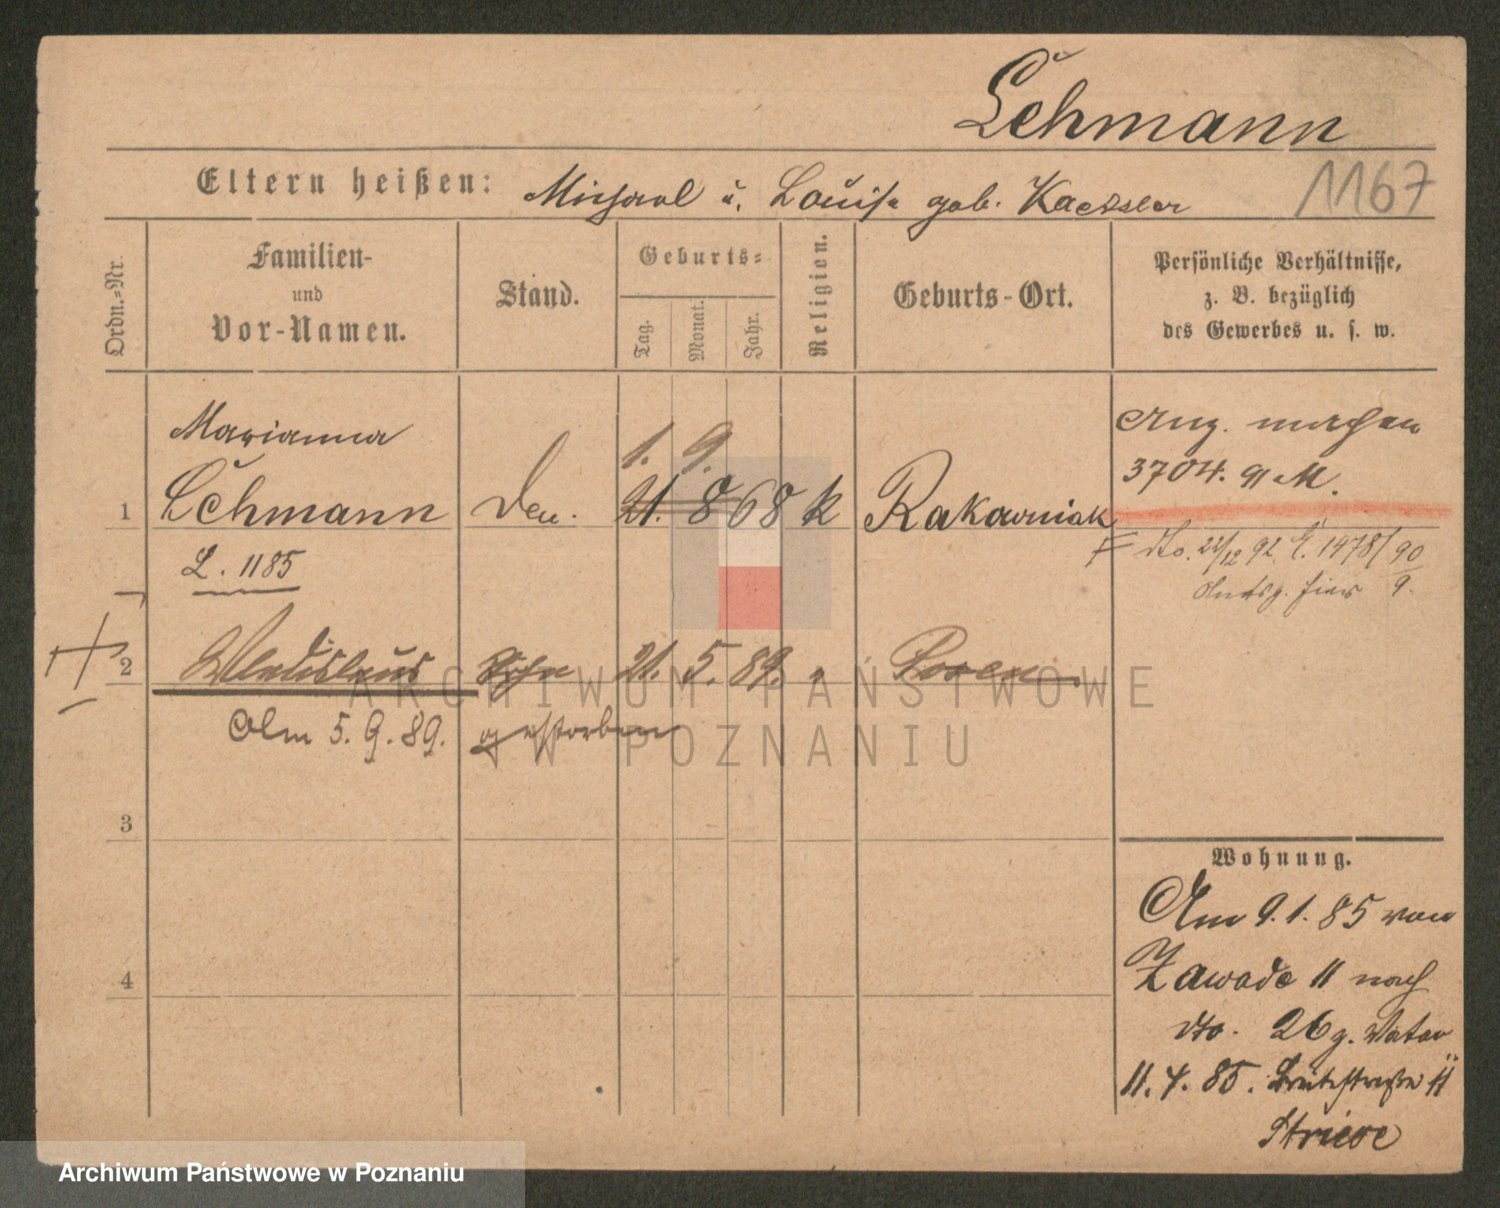 Lehmann
Eltern heißen: Michael u. Louise geb. Kaessler
1167
Ordn.=Nr.
Familien-
und
Vor-Namen.
Stand.
Geburts=
Tag.
Monat.
Jahr.
Religion.
Geburts-Ort.
Persönliche Verhältnisse,
z. B. bezüglich
des Gewerbes u. s. w.
Marianna
1. 9.
1 Lehmann 21. 8 68 k Rakawniak
L. 1185
machen
3704. 91 M.
dto. 22/12 92 1478/90
9.
2 Wladislaus Sohn 21. 5. 89. " Posen
Am 5. 9. 89. gestorben
3
4
Wohnung.
Am 9. 1. 85 von
Zawade 11 nach
dto. 26 z. Vater
11. 4. 85. Breitestraße 11
ARCHIWUM PAŃSTWOWE
W POZNANIU
Archiwum Państwowe w Poznaniu